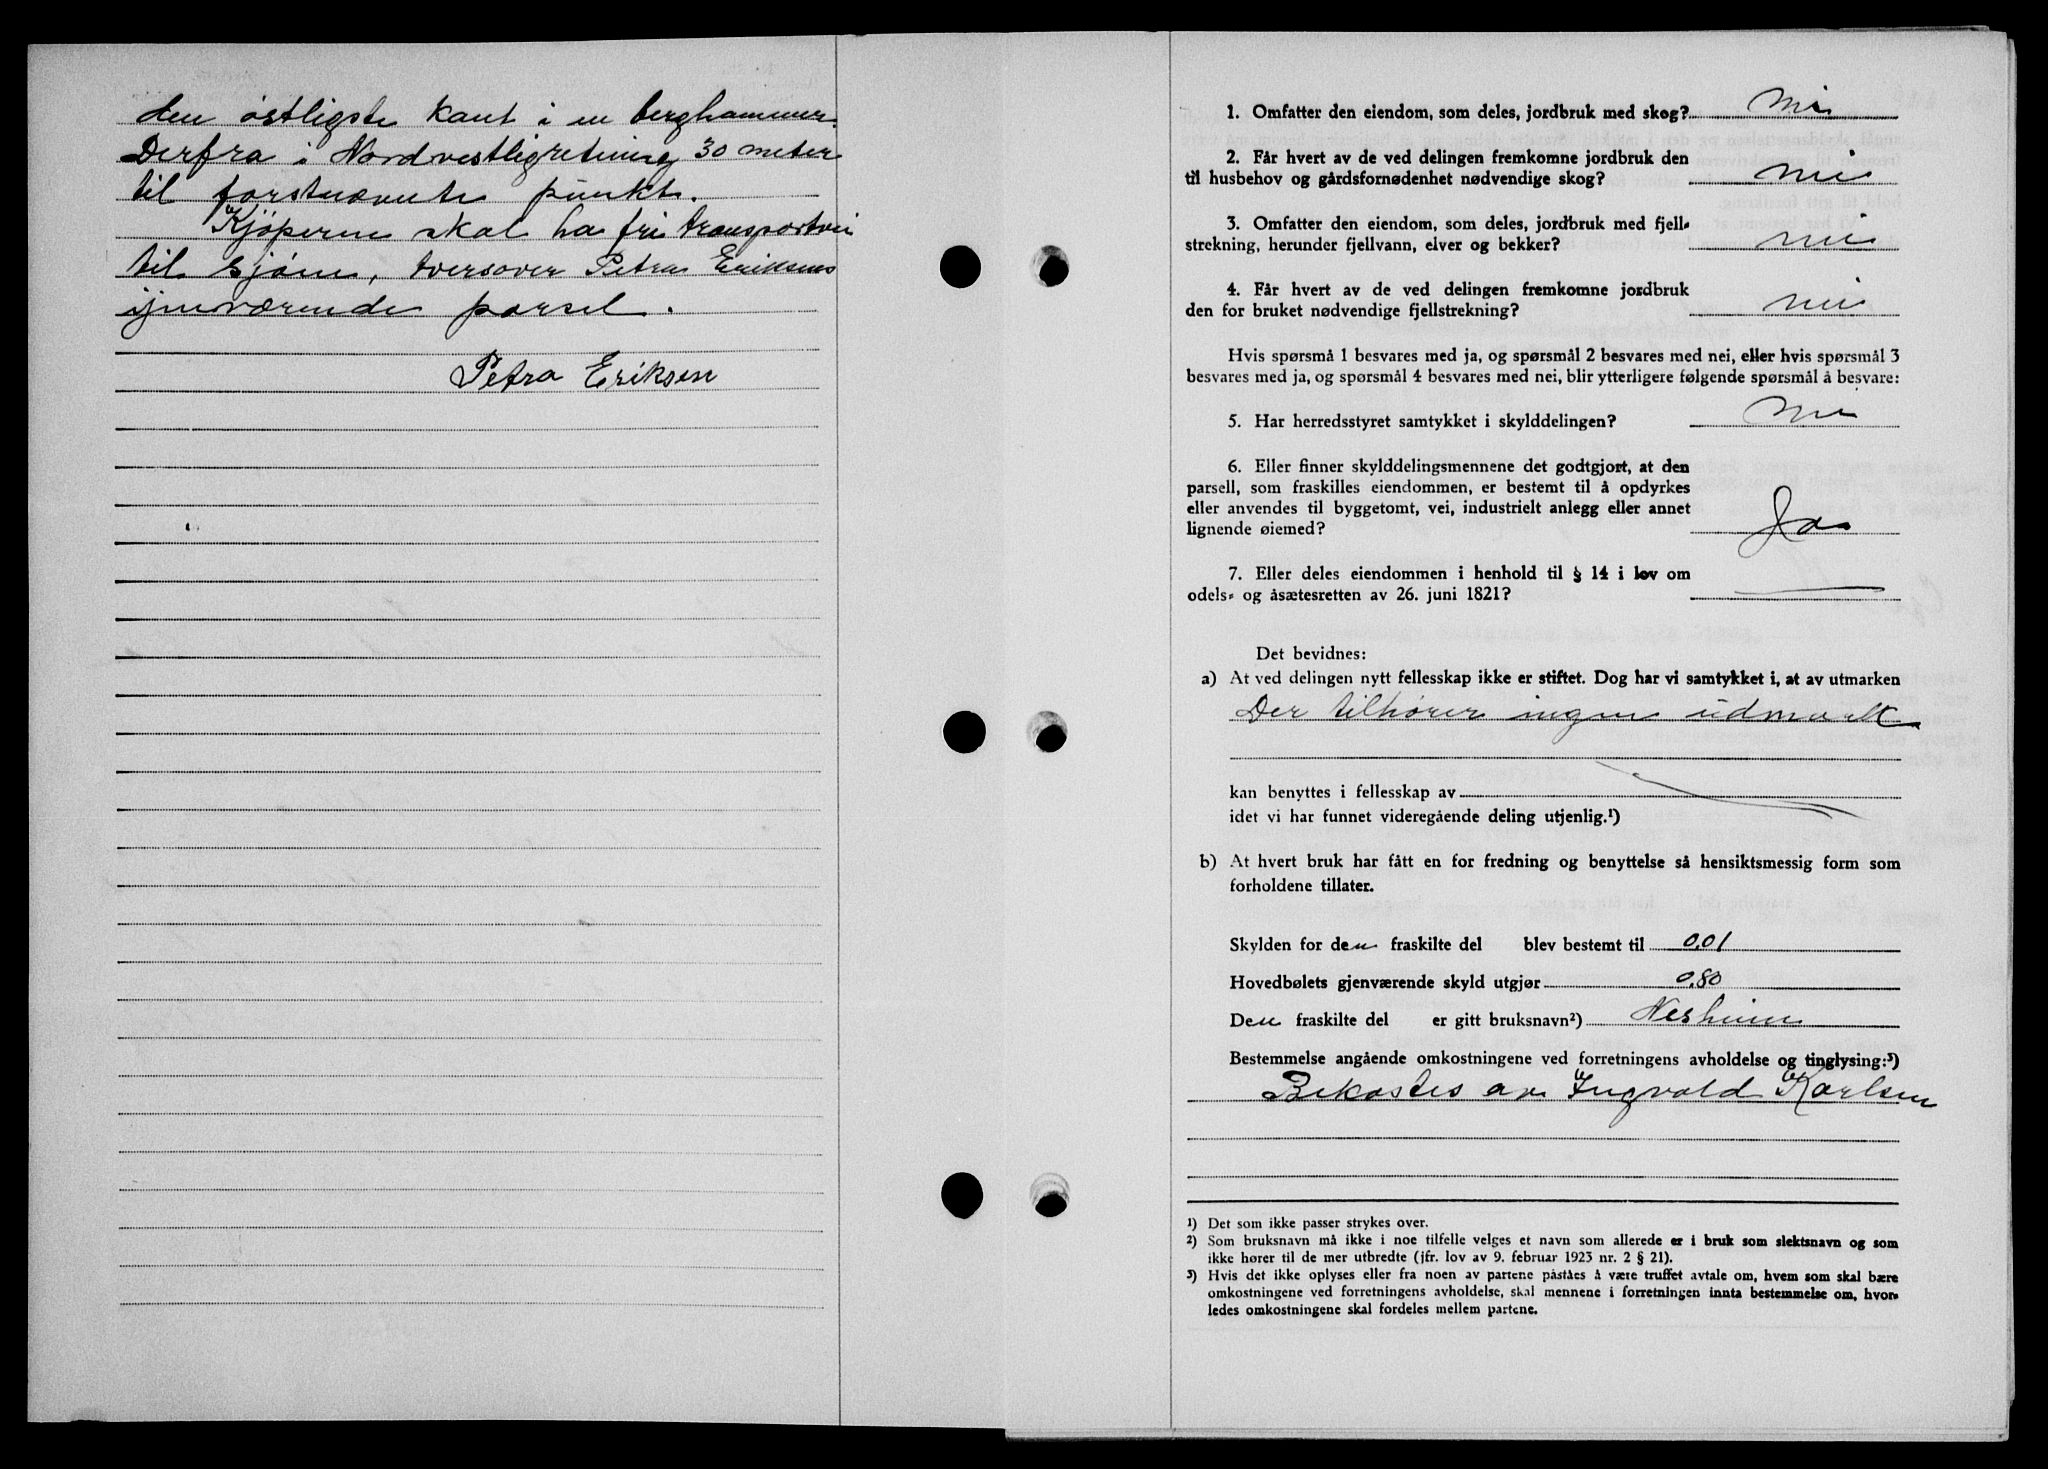 den östligste kant i en berghammer.
Derfra i Nordvestligretning 30 meter
til forstnævnte punkt.
Kjöperne skal ha fri transportvei
til sjöen, tversover Petra Eriksens
gjenværende parsel.
Petra Eriksen
1. Omfatter den eiendom, som deles, jordbruk med skog? Nei
2. Får hvert av de ved delingen fremkomne jordbruk den
til husbehov og gårdsfornødenhet nødvendige skog? nei
3. Omfatter den eiendom, som deles, jordbruk med fjell-
strekning, herunder fjellvann, elver og bekker? nei
4. Får hvert av de ved delingen fremkomne jordbruk
den for bruket nødvendige fjellstrekning? nei
Hvis spørsmå 1 besvares med ja, og spørsmål 2 besvares med nei, eller hvis spørsmål 3
besvares med ja, og spørsmål 4 besvares med nei, blir ytterligere følgende spørsmål å besvare:
5. Har herredsstyret samtykket i skylddelingen? Nei
6. Eller finner skylddelingsmennene det godtgjort, at den
parsell, som fraskilles eiendommen, er bestemt til å opdyrkes
eller anvendes til byggetomt, vei, industrielt anlegg eller annet
lignende øiemed? Ja
7. Eller deles eiendommen i henhold til § 14 i lov om
odels- og åsætesretten av 26. juni 1821?
Det bevidnes:
a) At ved delingen nytt fellesskap ikke er stiftet. Dog har vi samtykket i, at av utmarken
Der tilhører ingen udmark
kan benyttes i fellesskap av
idet vi har funnet videregående deling utjenlig.¹)
b) At hvert bruk har fått en for fredning og benyttelse så hensiktsmessig form som
forholdene tillater.
Skylden for den fraskilte del blev bestemt til 0.01
Hovedbølets gjenværende skyld utgjør 0.80
Den fraskilte del er gitt bruksnavn²) Nesheim
Bestemmelse angående omkostningene ved forretningens avholdelse og tinglysing:³)
Bekostes av Ingvald Karlsen
¹) Det som ikke passer strykes over.
²) Som bruksnavn må ikke i noe tilfelle velges et navn som allerede er i bruk som slektsnavn og som
ikke hører til de mer utbredte (jfr. lov av 9. februar 1923 nr. 2 § 21).
³) Hvis det ikke oplyses eller fra noen av partene påståes å være truffet avtale om, hvem som skal bære
omkostningene ved forretningens avholdelse, skal mennene i forretningen innta bestemmelse om, hvor-
ledes omkostningene skal fordeles mellem partene.